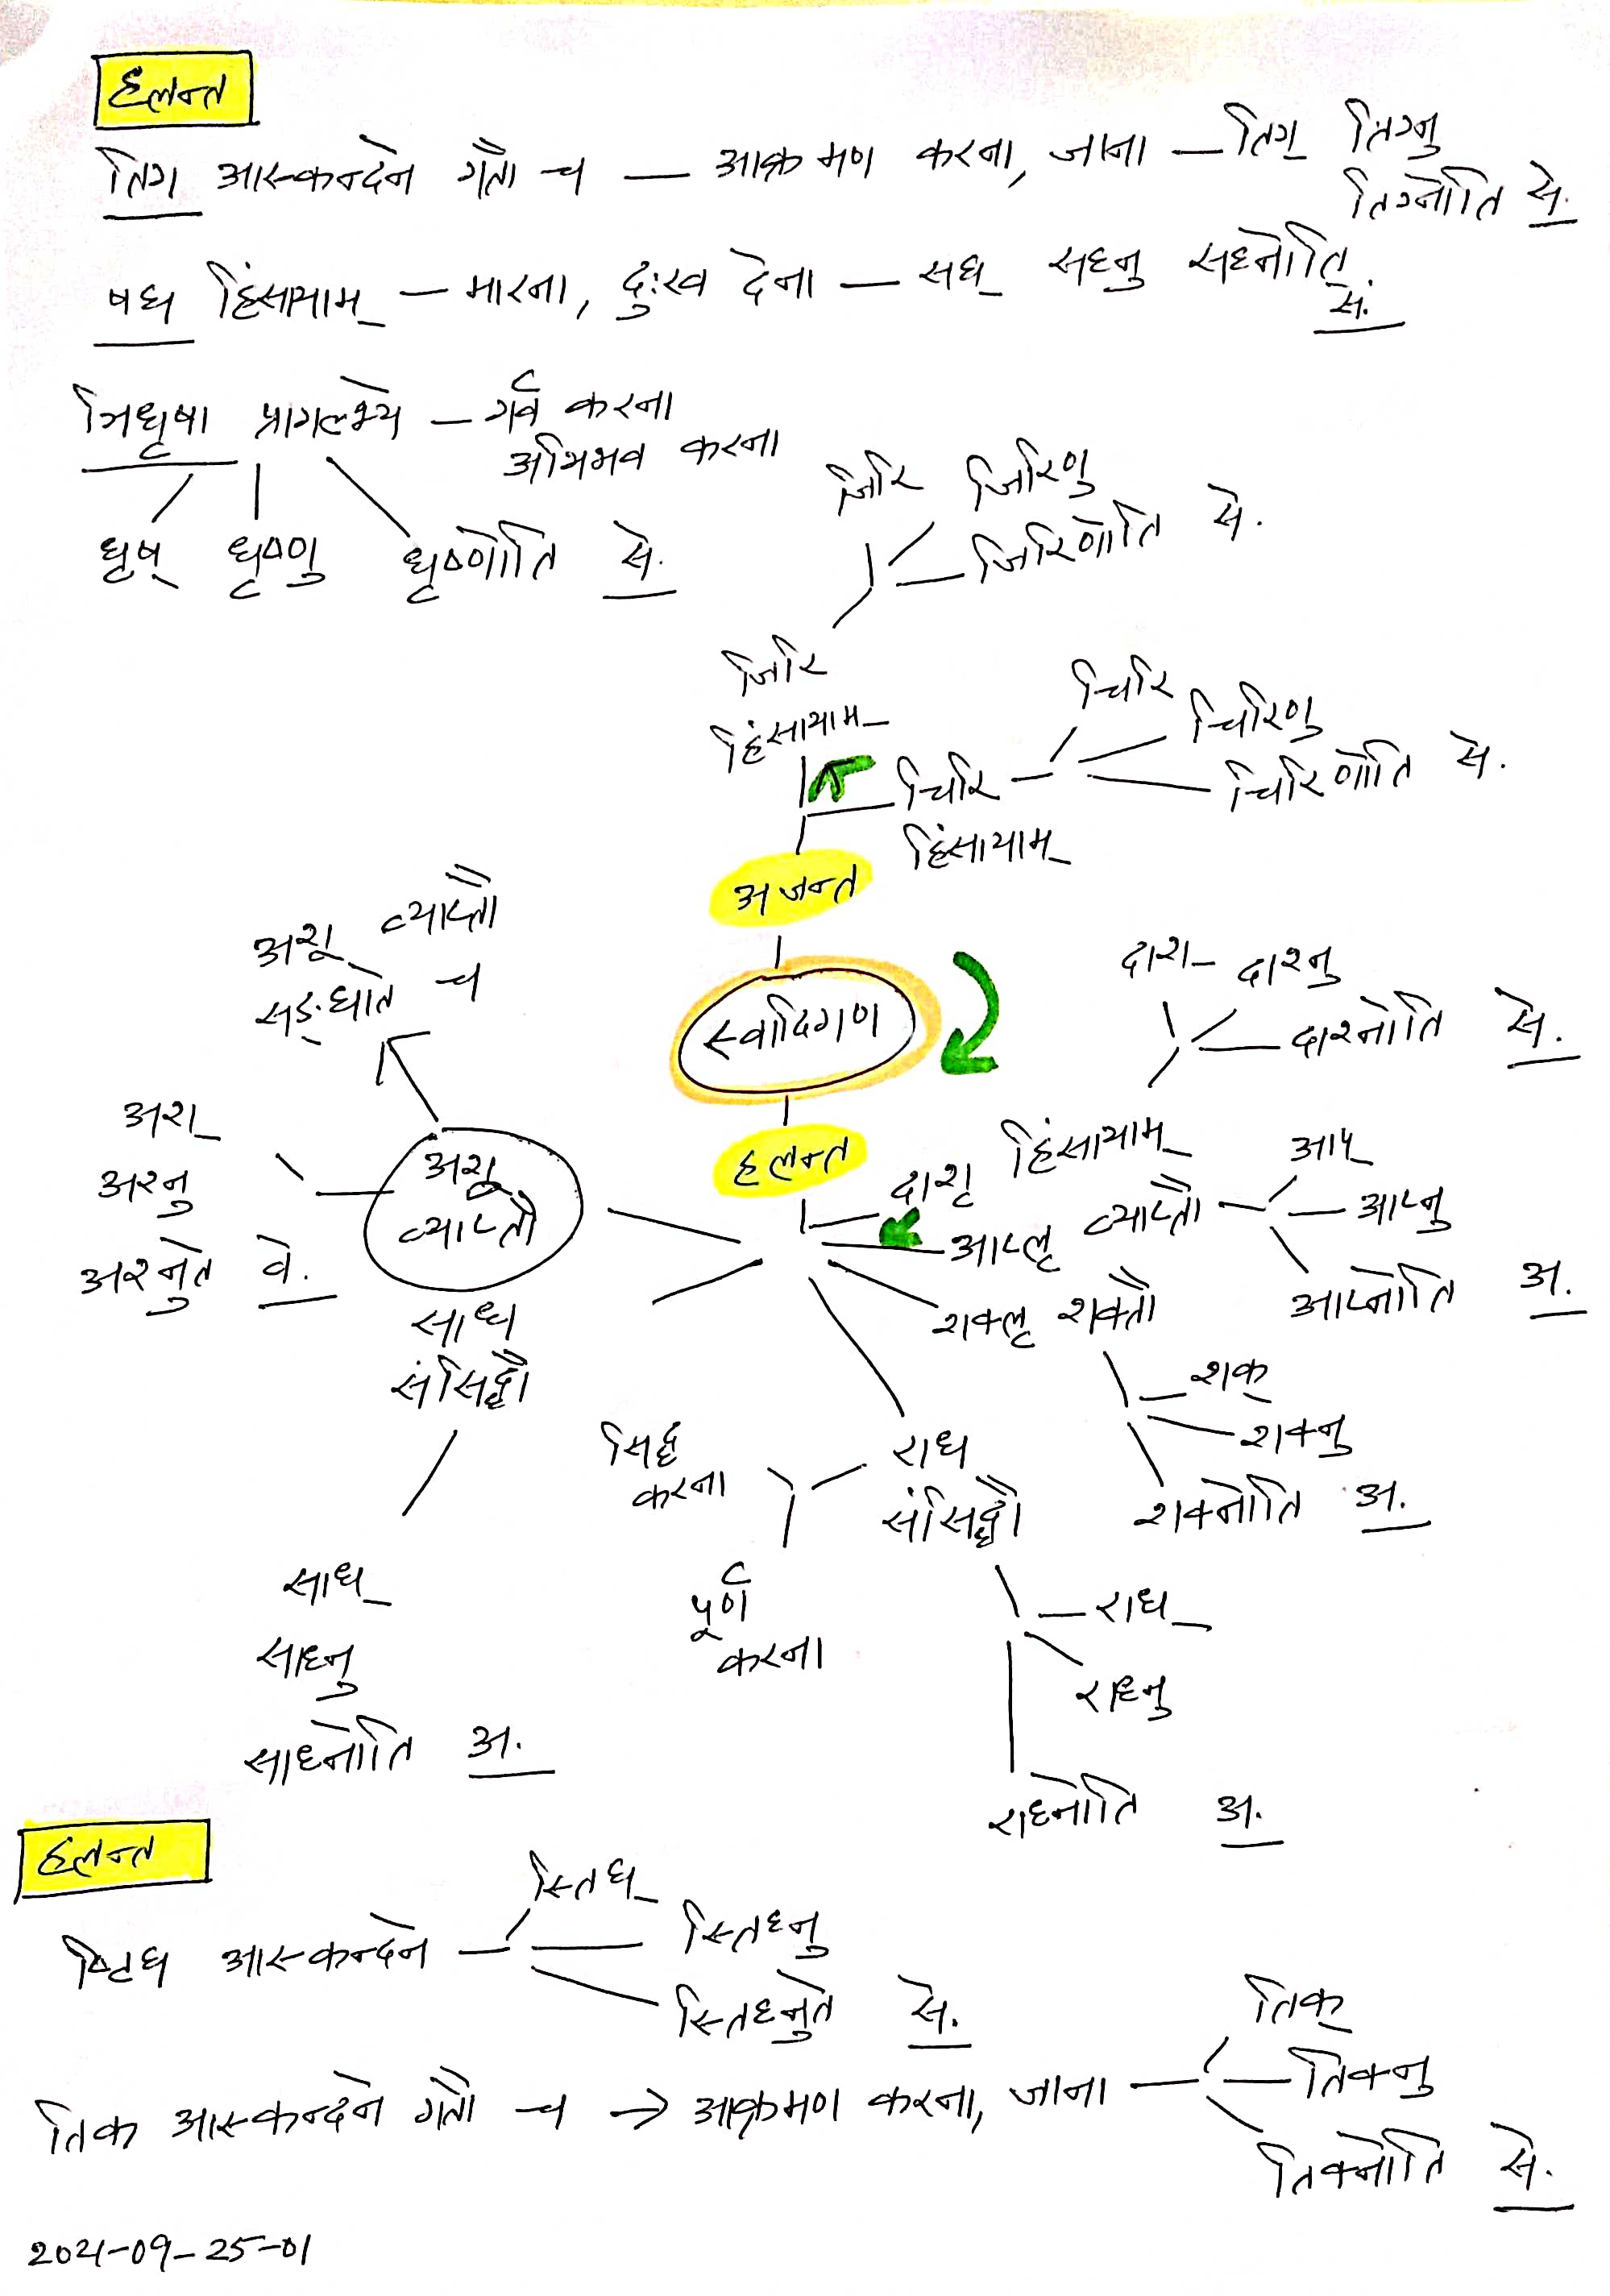 हलन्त
तिग आस्कन्दने गतौ च — आक्रमण करना, जाना — तिग् तिग्नु
तिग्नोति से.
षघ हिंसायाम् — मारना, दुःख देना — सघ् सघ्नु सघ्नोति
से.
ञिधृषा प्रागल्भ्ये — गर्व करना
अभिभव करना
धृष् धृष्णु धृष्णोति से.
जिरि जिरिणु
जिरिणोति से.
जिरि
हिंसायाम्
चिरि
हिंसायाम्
चिरि
चिरिणु
चिरिणोति से.
अजन्त
स्वादिगण
हलन्त
दाशृ हिंसायाम्
दाश् दाश्नु
दाश्नोति से.
आप्लृ व्याप्तौ
आप्
आप्नु
आप्नोति अ.
शक्लृ शक्तौ
शक्
शक्नु
शक्नोति अ.
राध
संसिद्धौ
सिद्ध
करना
पूर्ण
करना
राध्
राध्नु
राध्नोति अ.
साध
संसिद्धौ
साध्
साध्नु
साध्नोति अ.
अशू
व्याप्तौ
अशू व्याप्तौ
सङ्घाते च
अश्
अश्नु
अश्नुते वे.
हलन्त
ष्टिघ आस्कन्दने
स्तिघ्
स्तिघ्नु
स्तिघ्नुते से.
तिक आस्कन्दने गतौ च → आक्रमण करना, जाना —
तिक्
तिक्नु
तिक्नोति से.
2021-09-25-01